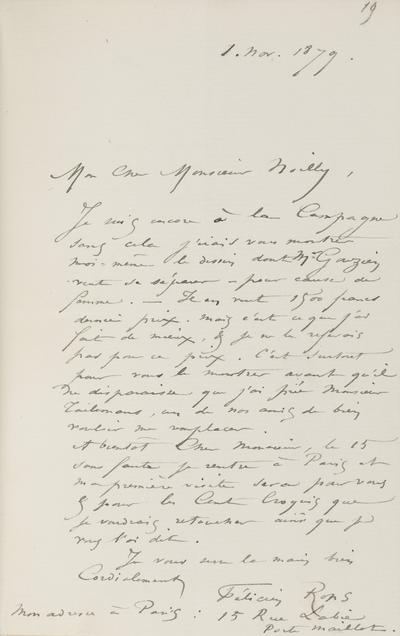 19
1. Nov. 1879.
Mon Cher Monsieur Noilly,
Je suis encore à la Campagne
sans cela j'irais vous montrer
moi-même le dessin dont Mr Gouzien
veut se séparer - pour cause de
femme. - Il en veut 1500 francs
dernier prix. Mais c'est ce que j'ai
fait de mieux, & je ne le referais
pas pour ce prix. C'est surtout
pour vous le montrer avant qu'il
ne disparaisse que j'ai prié Monsieur
Taelemans, un de nos amis de bien
vouloir me remplacer.
A bientot Cher Monsieur, le 15
sans faute je rentre à Paris et
ma première visite sera pour vous
& pour les Cent Croquis que
je voudrais retoucher ainsi que je
vous l'ai dit.
Je vous serre la main bien
Cordialement
Félicien Rops
Mon adresse à Paris : 15 Rue Labie
Porte Maillot.